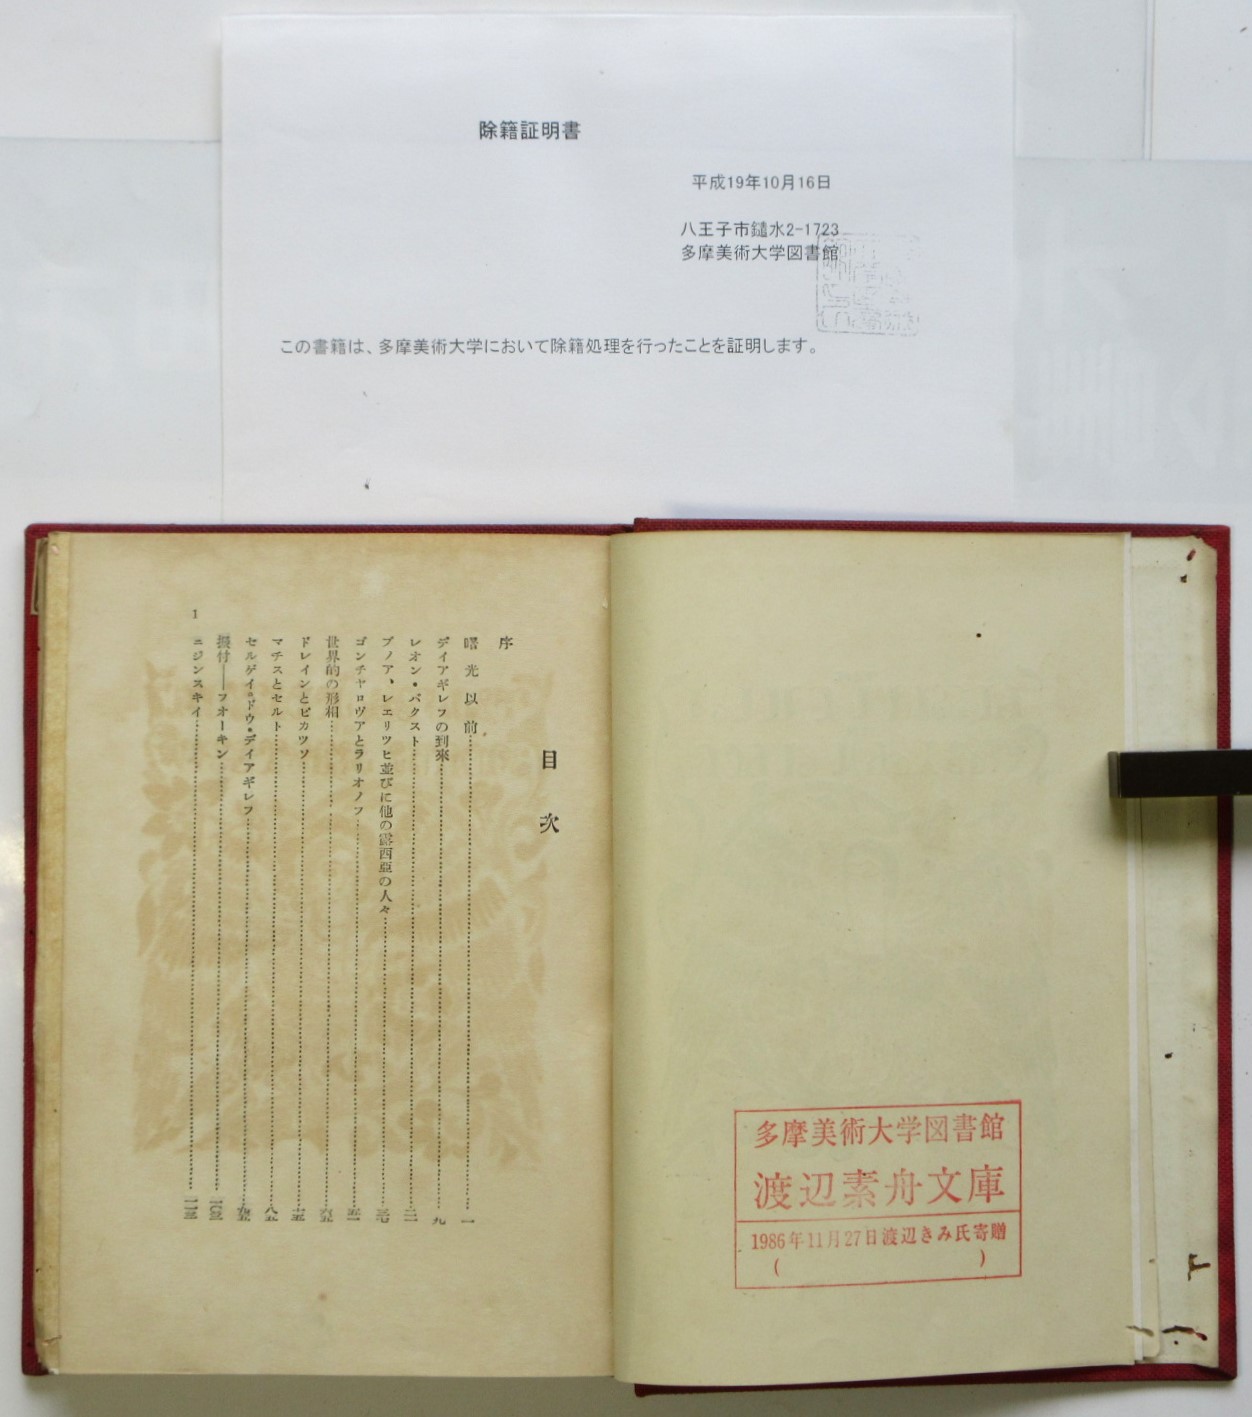 除籍証明書
平成19年10月16日
八王子市鑓水2-1723
多摩美術大学図書館
この書籍は、多摩美術大学において除籍処理を行ったことを証明します。
多摩美術大学図書館
渡辺素舟文庫
1986年11月27日渡辺きみ氏寄贈
( )
目次
序
曙光以前 一
デイアギレフの到來 九
レオン・バクスト 二一
ブノア、レエリツヒ並びに他の露西亞の人々 三七
ゴンチャロヴアとラリオノフ 五一
世界的の形相 六五
ドレインとピカツソ 七五
マチスとセルト 八五
セルゲイ・ドウ・デイアギレフ 九五
振付——フオーキン 一〇三
ニジンスキイ 一一三
1